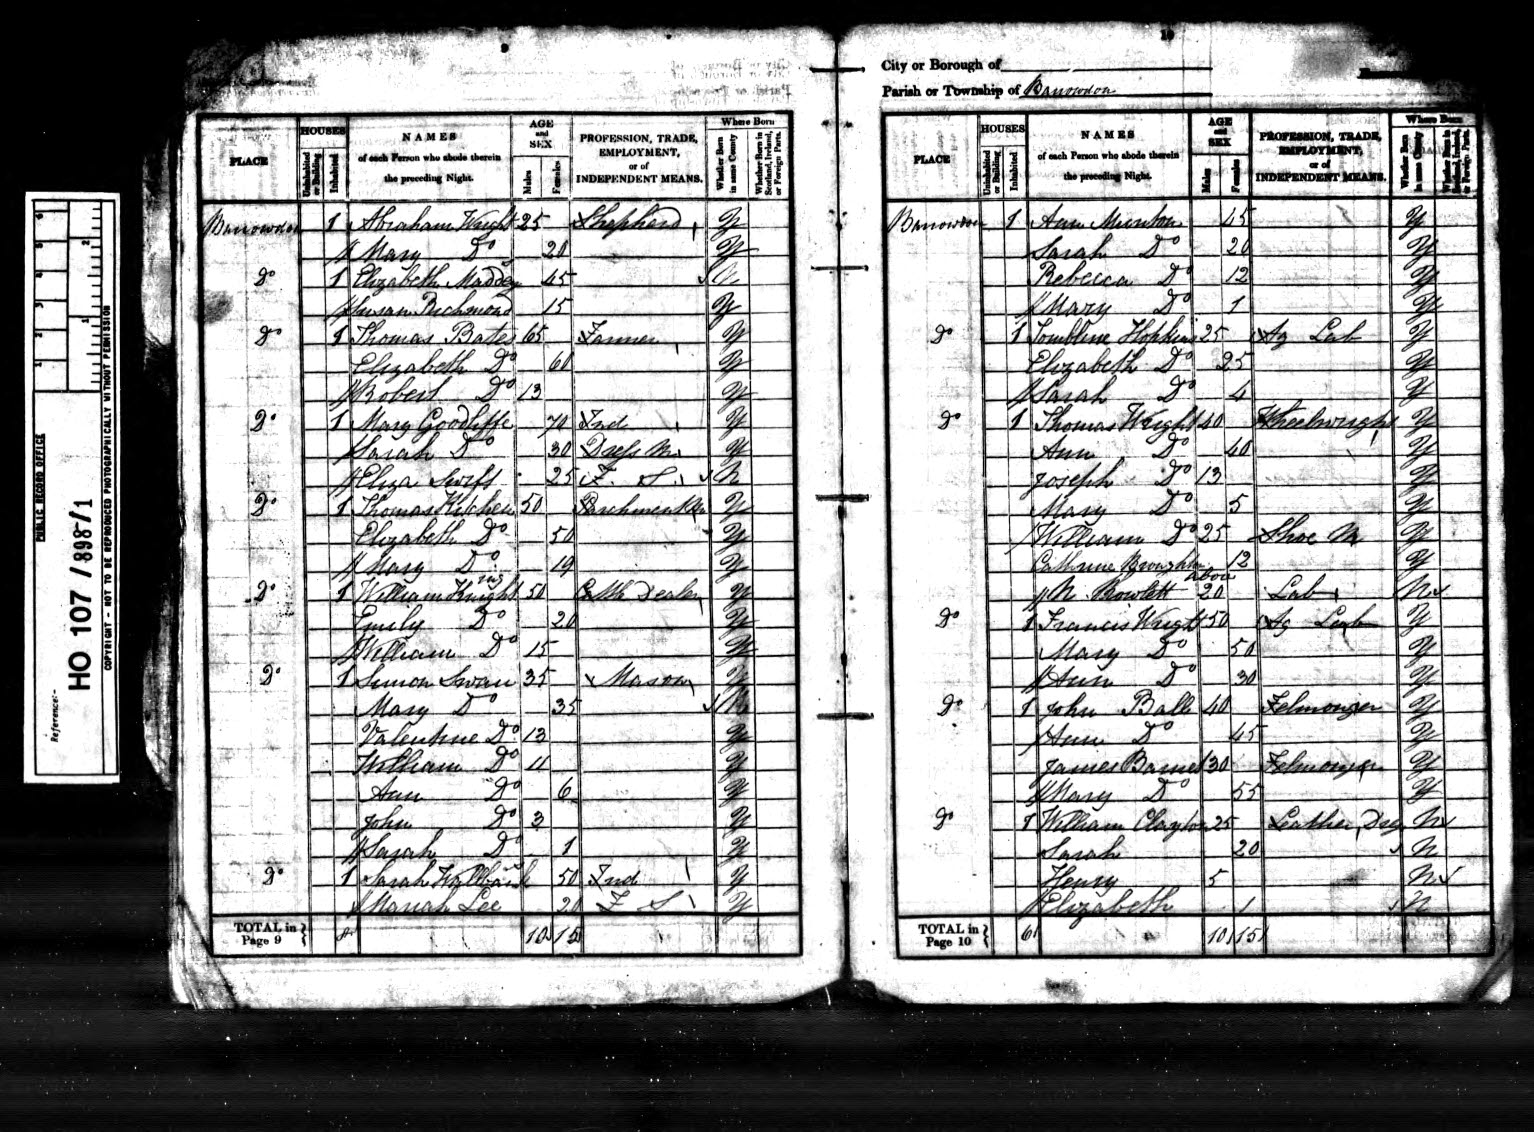 9
PLACE HOUSES Uninhabited or Building Inhabited NAMES of each Person who abode therein the preceding Night. AGE and SEX Males Females PROFESSION, TRADE, EMPLOYMENT, or of INDEPENDENT MEANS. Where Born Whether Born in same County Whether Born in Scotland, Ireland, or Foreign Parts.
Barrowdon 1 Abraham Wright 25 Shepherd Y
Mary Do 20 Y
Do 1 Elizabeth 45 N
Susan Richmond 15 Y
Do 1 Thomas Bates 65 Farmer Y
Elizabeth Do 60 Y
Robert Do 13 Y
Do 1 Mary Goodliffe 70 Ind Y
Sarah Do 30 Dress M. Y
Eliza Swift 25 F. S. N
Do 1 Thomas Kitchen 50 Y
Elizabeth Do 50 Y
Mary Do 19 Y
Do 1 William Knight 50 Cattle Dealer Y
Emily Do 20 Y
William Do 15 Y
Do 1 Simon Swan 35 Mason Y
Mary Do 35 N
Valentine Do 13 Y
William Do 11 Y
Ann Do 6 Y
John Do 3 Y
Sarah Do 1 Y
Do 1 Sarah 50 Ind Y
Mariah Lee 20 F S Y
TOTAL in Page 9 8 10 15
10
City or Borough of
Parish or Township of Barrowdon
PLACE HOUSES Uninhabited or Building Inhabited NAMES of each Person who abode therein the preceding Night. AGE and SEX Males Females PROFESSION, TRADE, EMPLOYMENT, or of INDEPENDENT MEANS. Where Born Whether Born in same County Whether Born in Scotland, Ireland, or Foreign Parts.
Barrowdon 1 Ann Munton 45 Y
Sarah Do 20 Y
Rebecca Do 12 Y
Mary Do 1 Y
Do 1 Tombline Hopkins 25 Ag Lab Y
Elizabeth Do 25 Y
Sarah Do 4 Y
Do 1 Thomas Wright 40 Wheelwright Y
Ann Do 40 Y
Joseph Do 13 Y
Mary Do 5 Y
William Do 25 Shoe M Y
Catherine Broughton 12 Y
above
N. Rowlett 20 Lab N
Do 1 Francis Wright 50 Ag Lab Y
Mary Do 50 Y
Ann Do 30 Y
Do 1 John Ball 40 Felmonger Y
Ann Do 45 Y
James Barnes 30 Felmonger Y
Mary Do 55 Y
Do 1 William Clayton 25 Leather N
Sarah 20 N
Henry 5 N
Elizabeth 1 N
TOTAL in Page 10 6 10 15
PUBLIC RECORD OFFICE
Reference:-
HO 107/898/1
COPYRIGHT - NOT TO BE REPRODUCED PHOTOGRAPHICALLY WITHOUT PERMISSION